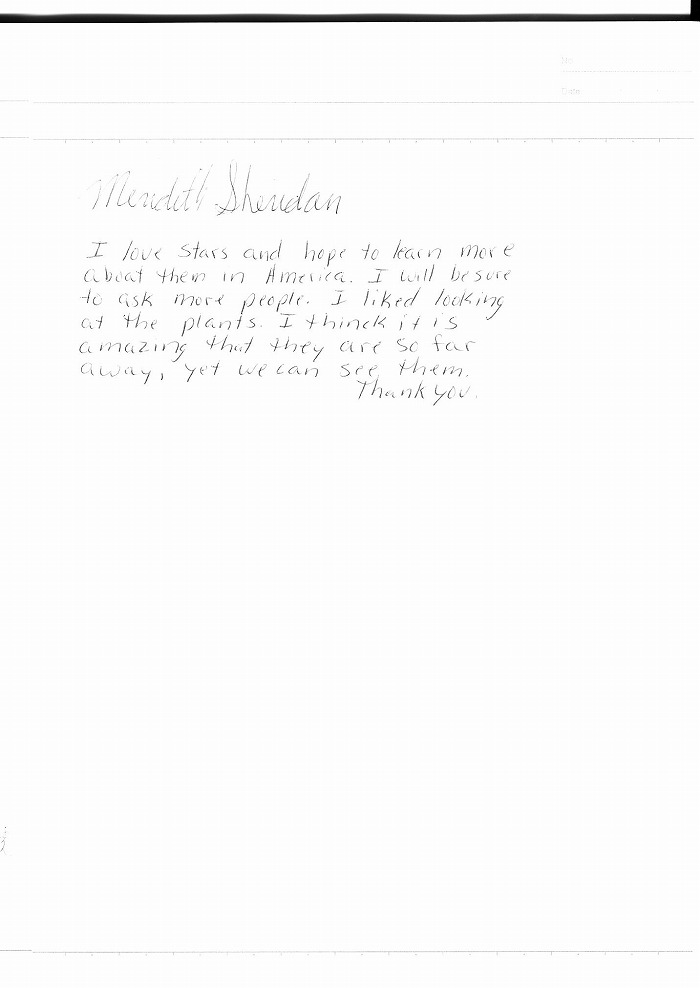 No.
Date
Meridith Sheridan
I love stars and hope to learn more
about them in America. I will be sure
to ask more people. I liked looking
at the plants. I thinck it is
amazing that they are so far
away, yet we can see them.
Thank you.